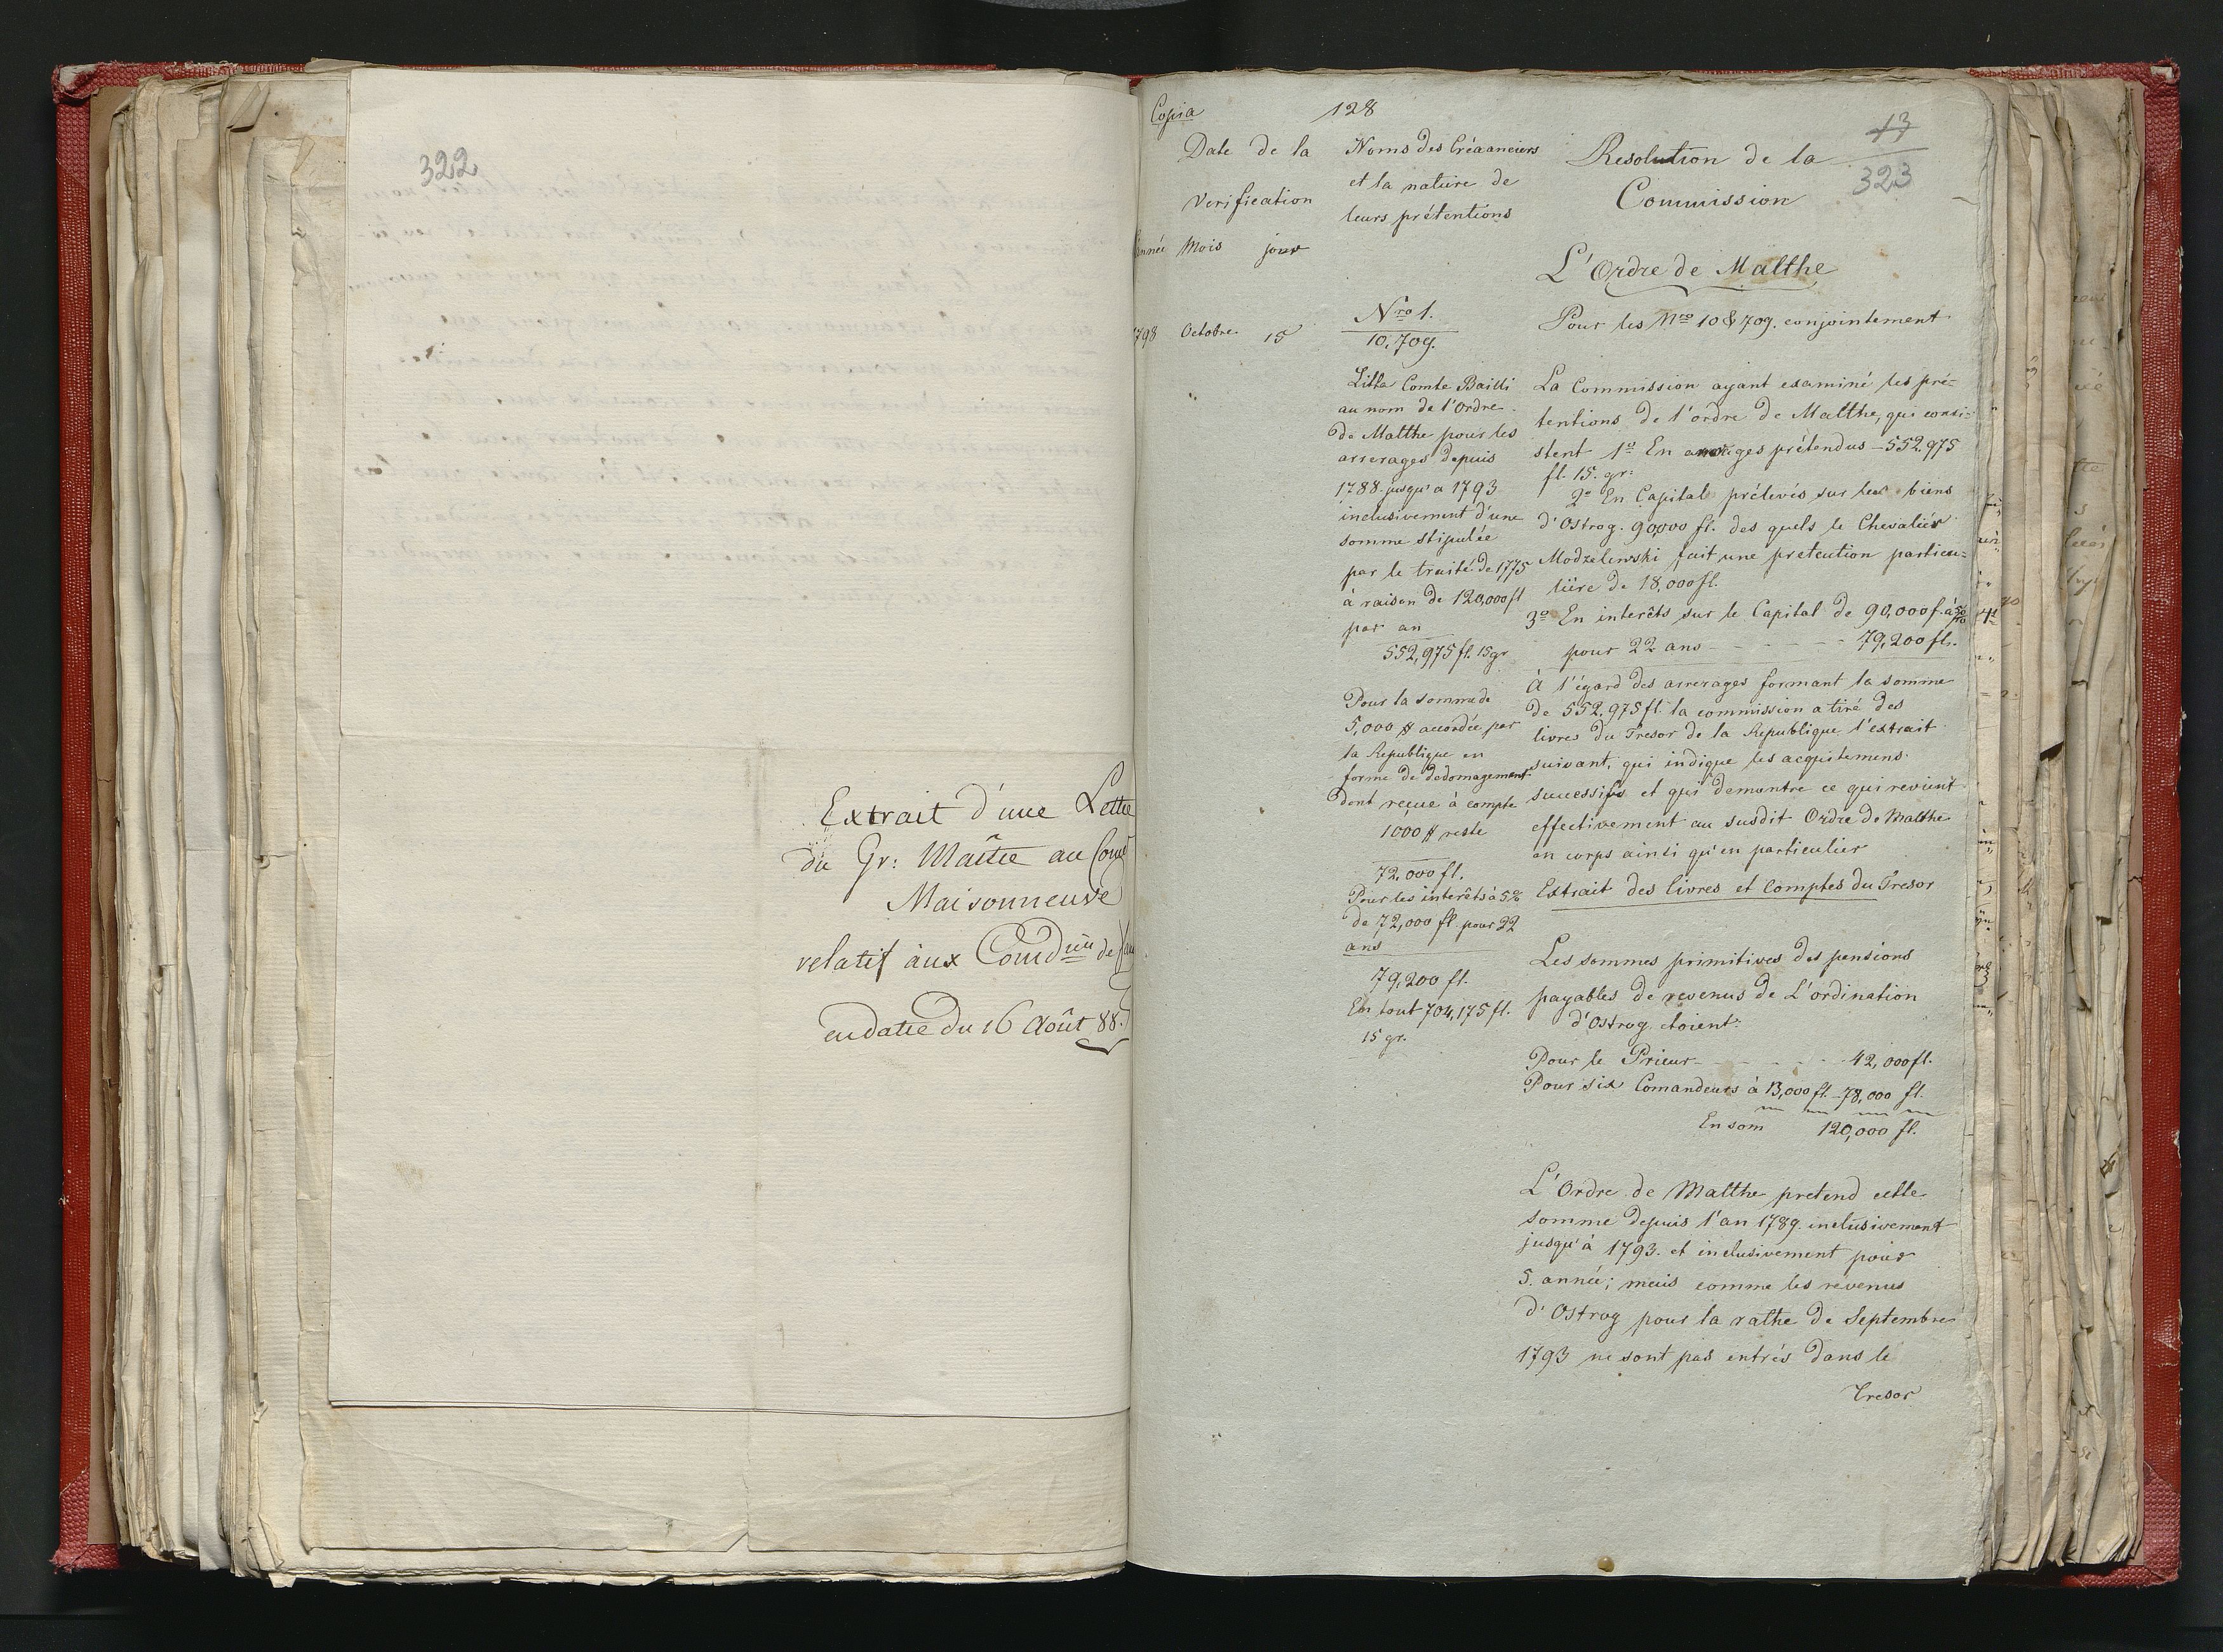 322
Extrait d'une Lettre
du Gr: Maître au
Maisonneuve
relatif àux Comdries de
en date du 16 Août 88.
Copia
128
13
323
Date de la
Verification
année Mois jour
1798 Octobre 15
Noms des Créaanciers
et la nature de
leurs prétentions
Nro 1.
10,709.
Litta Comte Bailli
au nom de l'Ordre
de Malthe pour les
arrerages depuis
1788. jusqu'a 1793
inclusivement d'une
somme stipulée
par le traité de 1775
à raison de 120,000 fl
par an
552,975 fl. 15 gr
Pour la somme de
5,000 # accordée par
la Republique en
forme de dedomagement
dont reçue à compte
1000 # reste
72,000 fl.
Pour les interêts à 5%
de 72,000 fl. pour 22
ans
79,200 fl.
En tout 704,175 fl.
15 gr.
Resolution de la
Commission
L'Ordre de Malthe
Pour les Nro 10 & 709. conjointement
La Commission ayant examiné les pré-
tentions de l'ordre de Malthe, qui consi-
stent 1o En arrerages prétendus - 552,975
fl. 15. gr:
2o En Capital prélevés sur les biens
d'Ostrog. 90,000 fl. des quels le Chevalier
Modzelewski fait une pretention particu-
liére de 18,000 fl.
3o En interêts sur le Capital de 90,000 f. à
pour 22 ans - - - - 79,200 fl.
À l'égard des arrerages formant la somme
de 552,975 fl. la commission a tiré des
livres du Tresor de la Republique l'extrait
suivant, qui indique les acquitemens
successifs et qui demontre ce qui revient
effectivement au susdit Ordre de Malthe
en corps ainsi qu'en particulier
Extrait des livres et Comptes du Tresor
Les sommes primitives des pensions
payables de revenus de L'ordination
d'Ostrog etoient:
Pour le Prieur - - - - - 42,000 fl.
Pour six Comandeurs à 13,000 fl. - 78,000 fl.
En som 120,000 fl.
L'Ordre de Malthe pretend cette
somme depuis l'an 1789. inclusivement
jusqu'à 1793. et inclusivement pour
5. année; mais comme les revenus
d'Ostrog pour la rathe de Septembre
1793 ne sont pas entrés dans le
Tresor